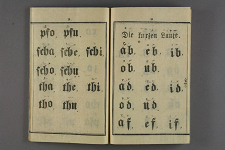 pſo, pſu.
ſcha ſche, ſchi.
ſcho ſchu
tha the, thi
tho thu
Die kurzen Laute.
ab, eb, ib.
ob, ub.
ad, ed, id.
od, ud
af, ef, if